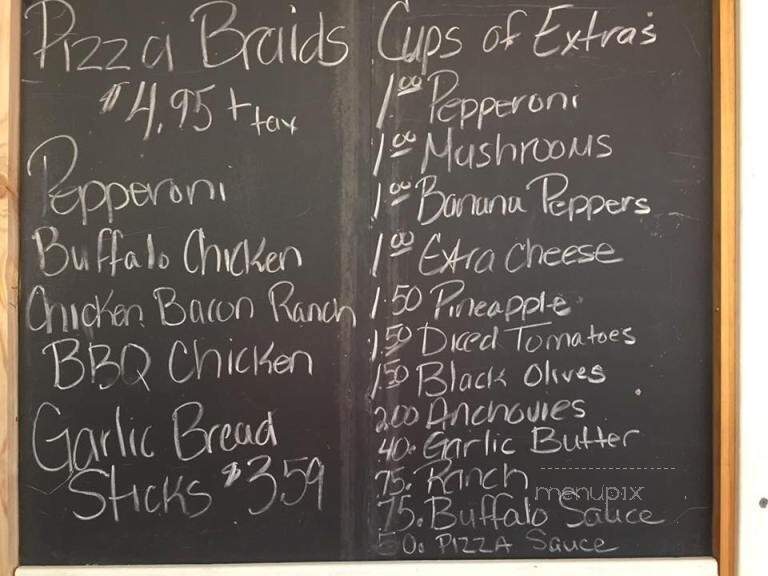 Pizza Braids
$4.95 + tax
Pepperoni
Buffalo Chicken
Chicken Bacon Ranch
BBQ Chicken
Garlic Bread
Sticks $3.59
Cups of Extra's
1.00 Pepperoni
1.00 Mushrooms
1.00 Banana Peppers
1.00 Extra Cheese
1.50 Pineapple
1.50 Diced Tomatoes
1.50 Black Olives
2.00 Anchovies
40. Garlic Butter
75. Ranch
menupix
75. Buffalo Sauce
50. Pizza Sauce